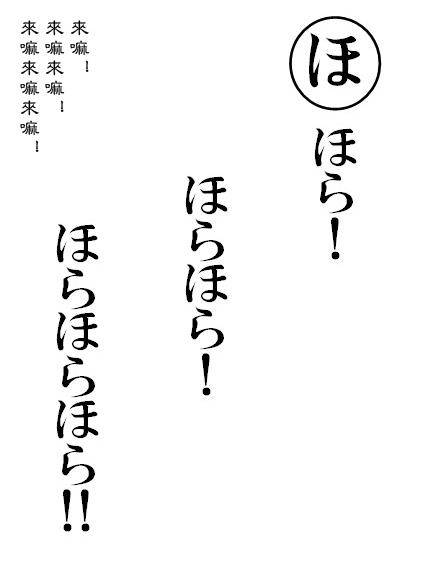 ほ
ほら!
ほらほら!
ほらほらほら!!
來嘛!
來嘛來嘛!
來嘛來嘛來嘛!